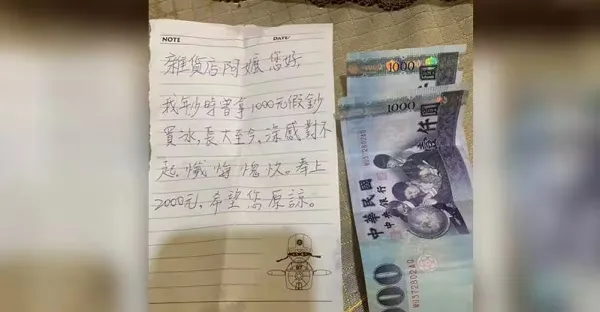 NOTE DATE/
雜貨店阿嬤您好,
我年少時曾拿1000元假鈔
買冰,長大至今,深感對不
起,懺悔愧疚。奉上
2000元,希望您原諒。
1000
1000
壹仟圓
中華民國
中央銀行
000